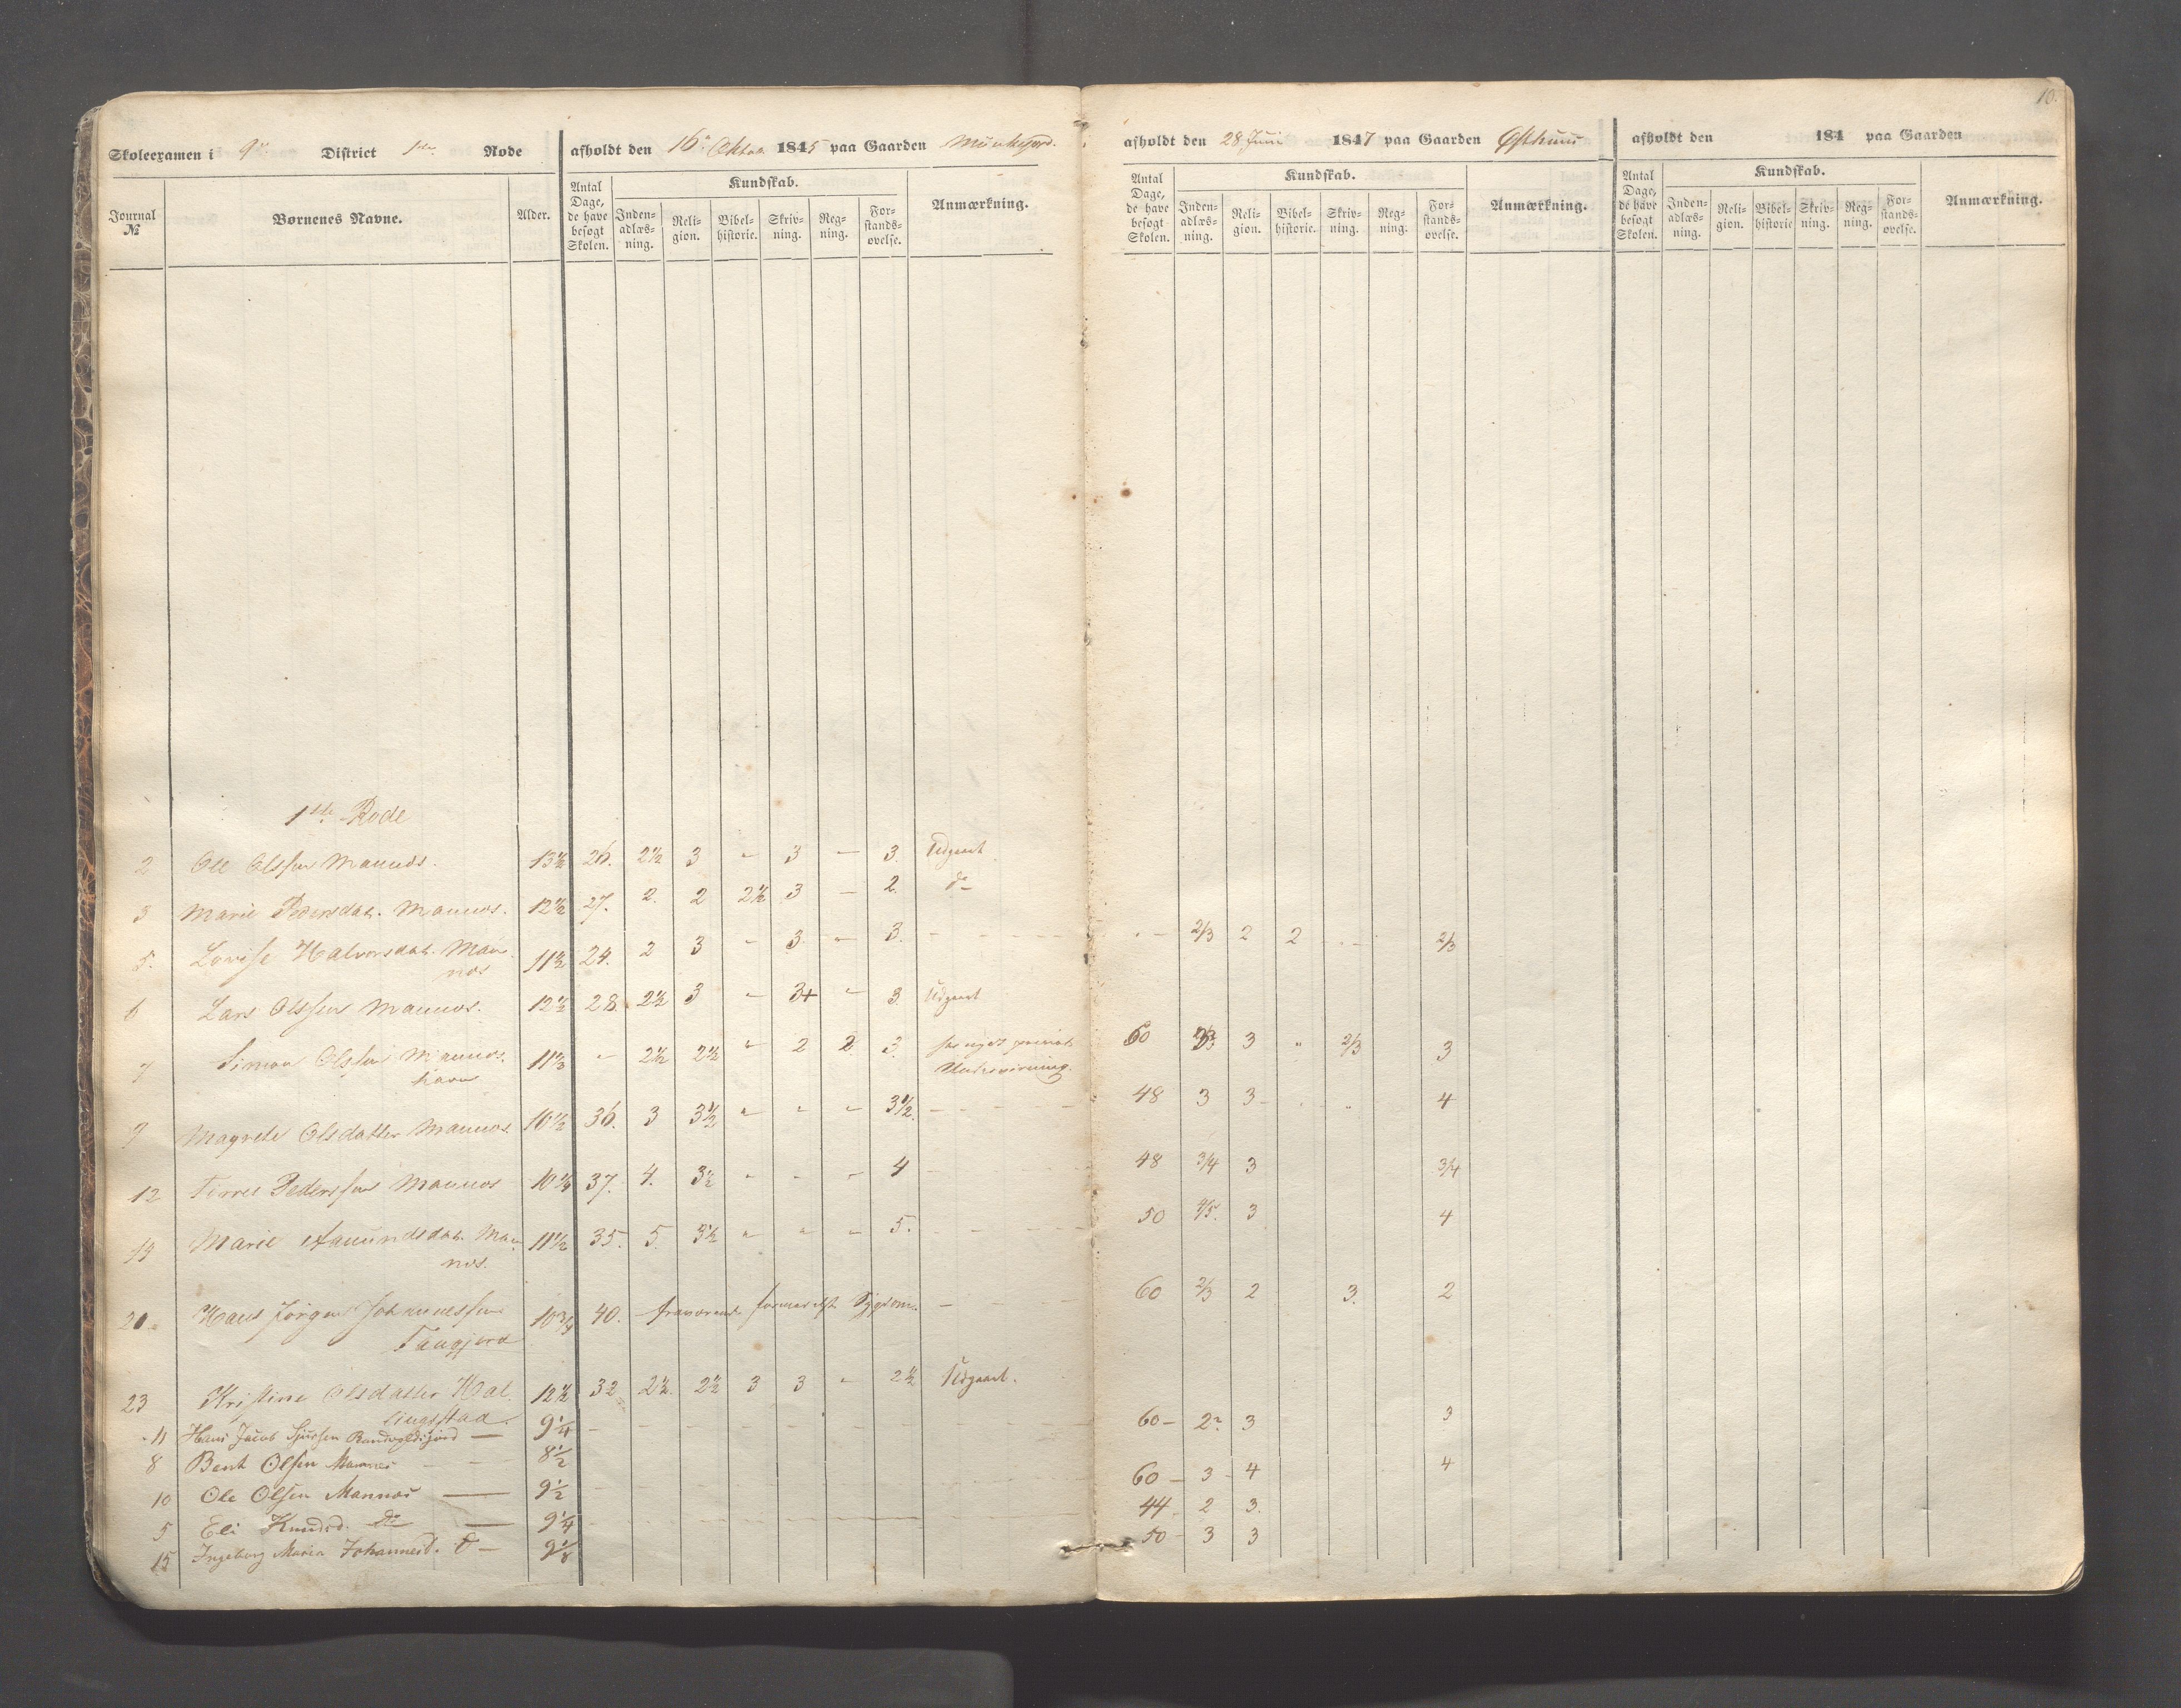 10.
Skoleexamen i 9de District 1ste Rode afholdt den 16de Oktbr 1845 paa Gaarden Munkejord.
afholdt den 28 Juni 1847 paa Gaarden Østhuus
afholdt den 184 paa Gaarden
Journal № Børnenes Navne. Alder. Antal Dage, de have besøgt Skolen. Kundskab. Inden-adlæs-ning. Reli-gion. Bibel-historie. Skriv-ning. Reg-ning. For-stands-øvelse. Anmærkning.
Antal Dage, de have besøgt Skolen. Kundskab. Inden-adlæs-ning. Reli-gion. Bibel-historie. Skriv-ning. Reg-ning. For-stands-øvelse. Anmærkning.
Antal Dage, de have besøgt Skolen. Kundskab. Inden-adlæs-ning. Reli-gion. Bibel-historie Skriv-ning. Reg-ning. For-stands-øvelse. Anmærkning.
1ste Rode
2 Ole Olssen Mannes. 13½ 26. 2½ 3 - 3 - 3. Udgaaet
3 Marie Pedersdat. Mannos. 12½ 27. 2. 2 2½ 3 - 2. do
5. Lovise Halvorsdat. Man 11½ 24. 2 3 - 3 - 3. - 2/3 2 2 - 2/3
nos
6 Lars Olssen Mannos. 12½ 28. 2½ 3 - 3+ - 3. Udgaaet
7 Simon Olssen Mannos 11½ - 2½ 2½ " 2 2 3. privat 60 3 " 2/3 3
havn Underviisning.
9 Magrete Olsdatter Mannos. 10½ 36. 3 3½ " " " 3½. - 48 3 3 - 4
12 Torres Pederssen Mannos 10¼ 37. 4. 3½ - - - 4 48 3/4 3 3/4
14 Marie Amundsdat. Man 11½ 35. 5. 3½ " " " 5. 50 4/5. 3 4
nos.
20 Hans Jørgen Johannessen 10¾ 40. fraværende formedelst Sygdom. - 60 2/3 2 3. 2
Tangjord
23 Kristine Olsdatter Hal 12½ 32 2½. 2½ 3 3 - 2½ Udgaaet.
lingstad.
11 Hans Jacob Sjursen — 9¼ - 60 - 2 3 3
8 Bent Olsen Mannes 8½ 60 - 3 - 4 4
10 Ole Olsen Mannos — 9½ 44 2 3.
5 Eli Knudsd. do — 9¼ 50 - 3 3
15 Ingeborg Maria Johannesd. do — 9⅛